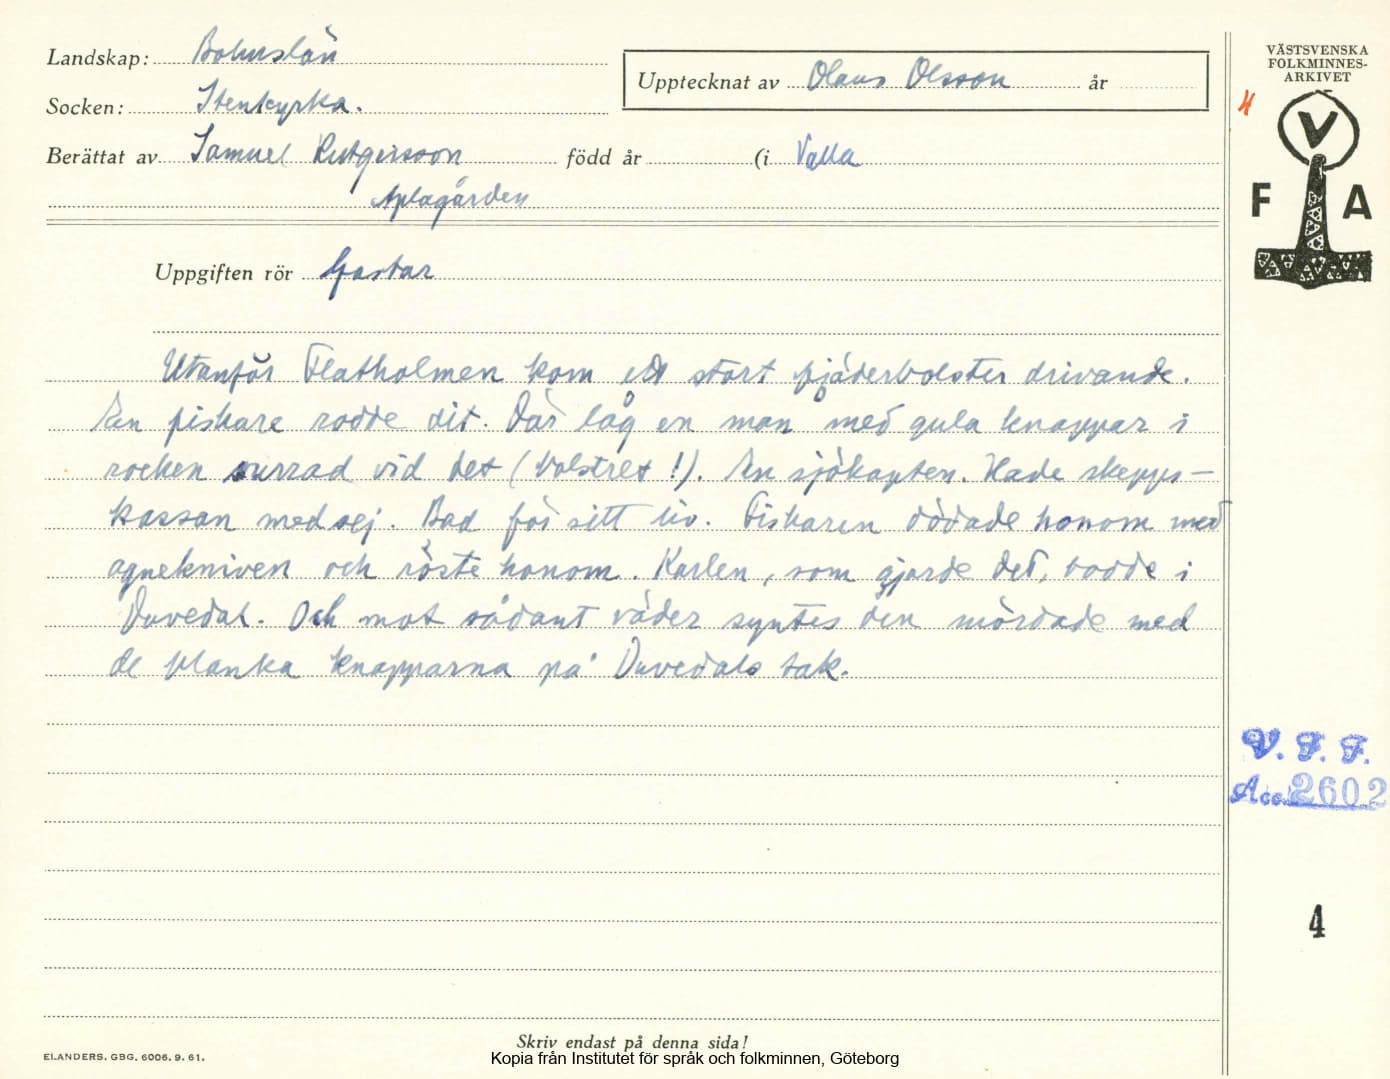 Landskap: Bohuslän
Socken: Stenkyrka.
Upptecknat av Olaus Olsson år
Berättat av Samuel Rutgersson född år (i Valla
Aplagården
Uppgiften rör Gastar
Utanför Flatholmen kom ett stort fjäderbolster drivande.
En fiskare rodde dit. Där låg en man med gula knappar i
rocken surrad vid det (bolstret!). En sjökapten. Hade skepps-
kassan med sej. Bad för sitt liv. Fiskaren dödade honom med
agnekniven och röste honom. Karlen, som gjorde det, bodde i
Duvedal. Och mot sådant väder syntes den mördade med
de blanka knapparna på Duvedals tak.
VÄSTSVENSKA
FOLKMINNES-
ARKIVET
V
F A
V. F. F.
Acc. 2602
4
Skriv endast på denna sida!
ELANDERS. GBG. 6006. 9. 61.
Kopia från Institutet för språk och folkminnen, Göteborg